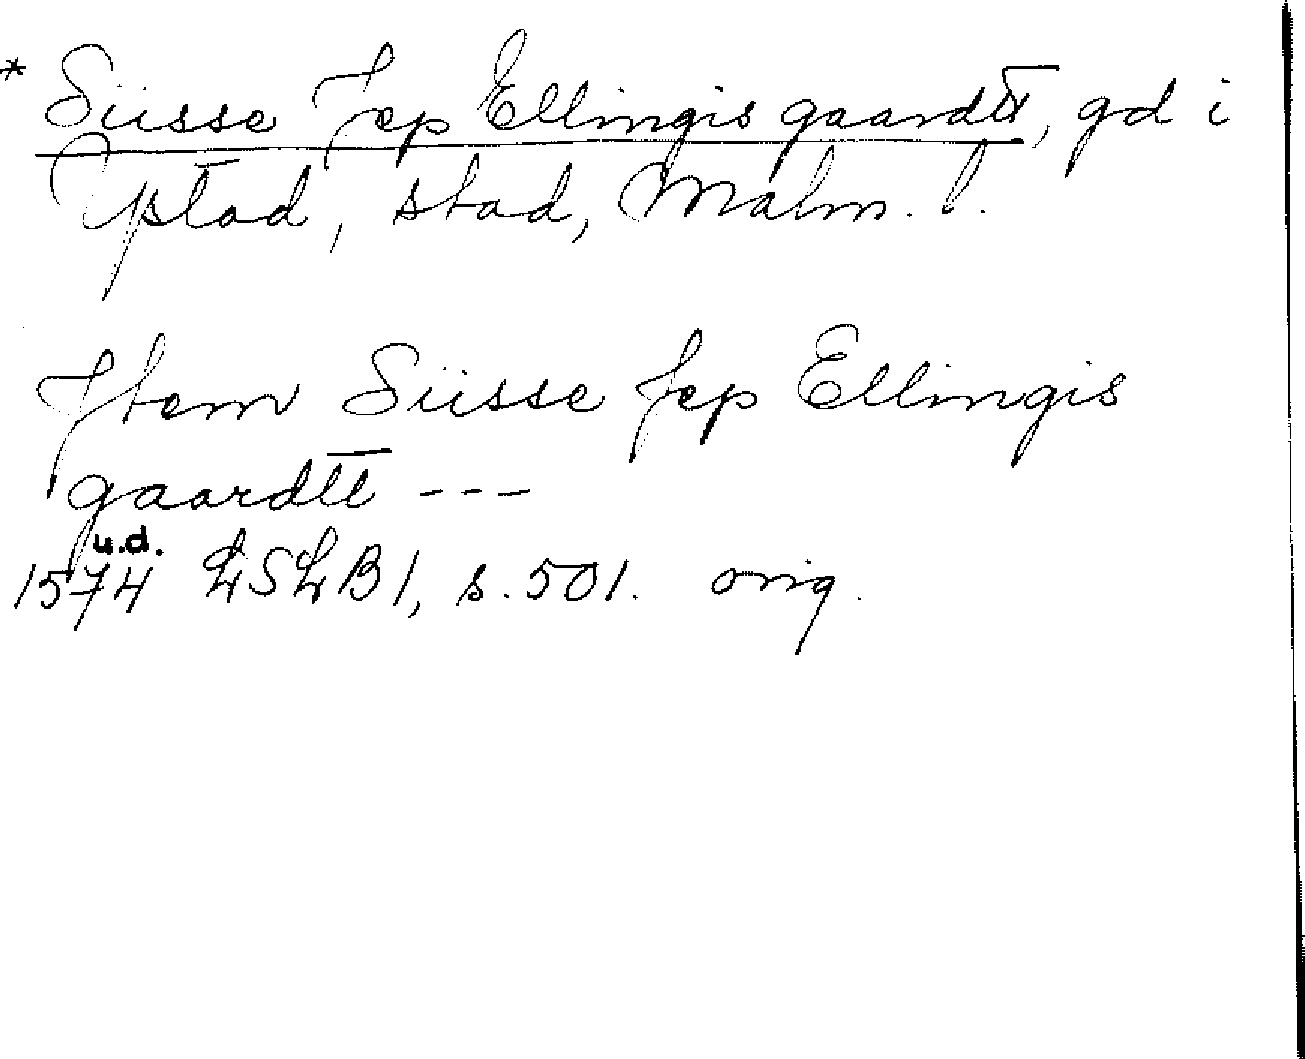 * Süsse Jep Ellingis gaardtt, gd i
Ystad, stad, Malm. l.
Jtem Süsse Jep Ellingis
gaardtt ---
u.d.
1574 LSLB1, s. 501. orig.